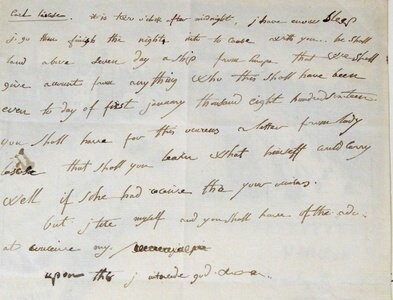 it is two o'clock after midnight, j have enow sleep
j go then finish the night into to cause with you.. he shall
land above seven day a ship from Europe that we shall
give account from anything who this shall have been
even to day of first january thousand eight hundred sixteen
you shall have for this ocurens a letter from lady
that shall you learn what himself could carry
well if she had conceive the your occurens.
but j tire myself and you shall have of the ado
at conceive my
upon this j god